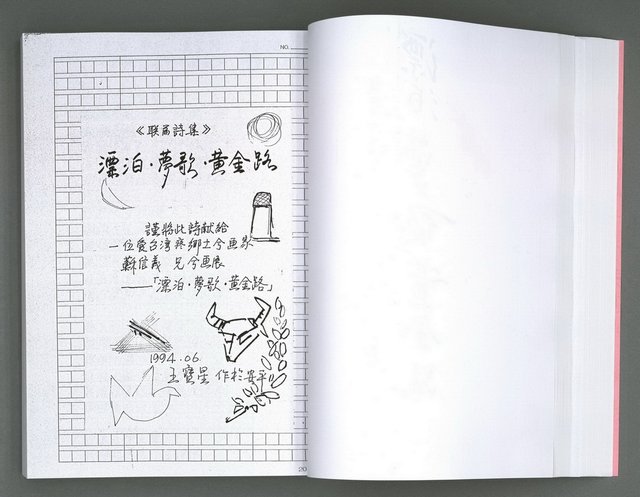 NO.
《聯篇詩集》
漂泊·夢歌·黃金路
謹將此詩献給
一位愛台湾與鄉土兮画家
蘇信義 兄兮画展
——「漂泊·夢歌·黃金路」
1994.06.
王寶星 作於安平
20